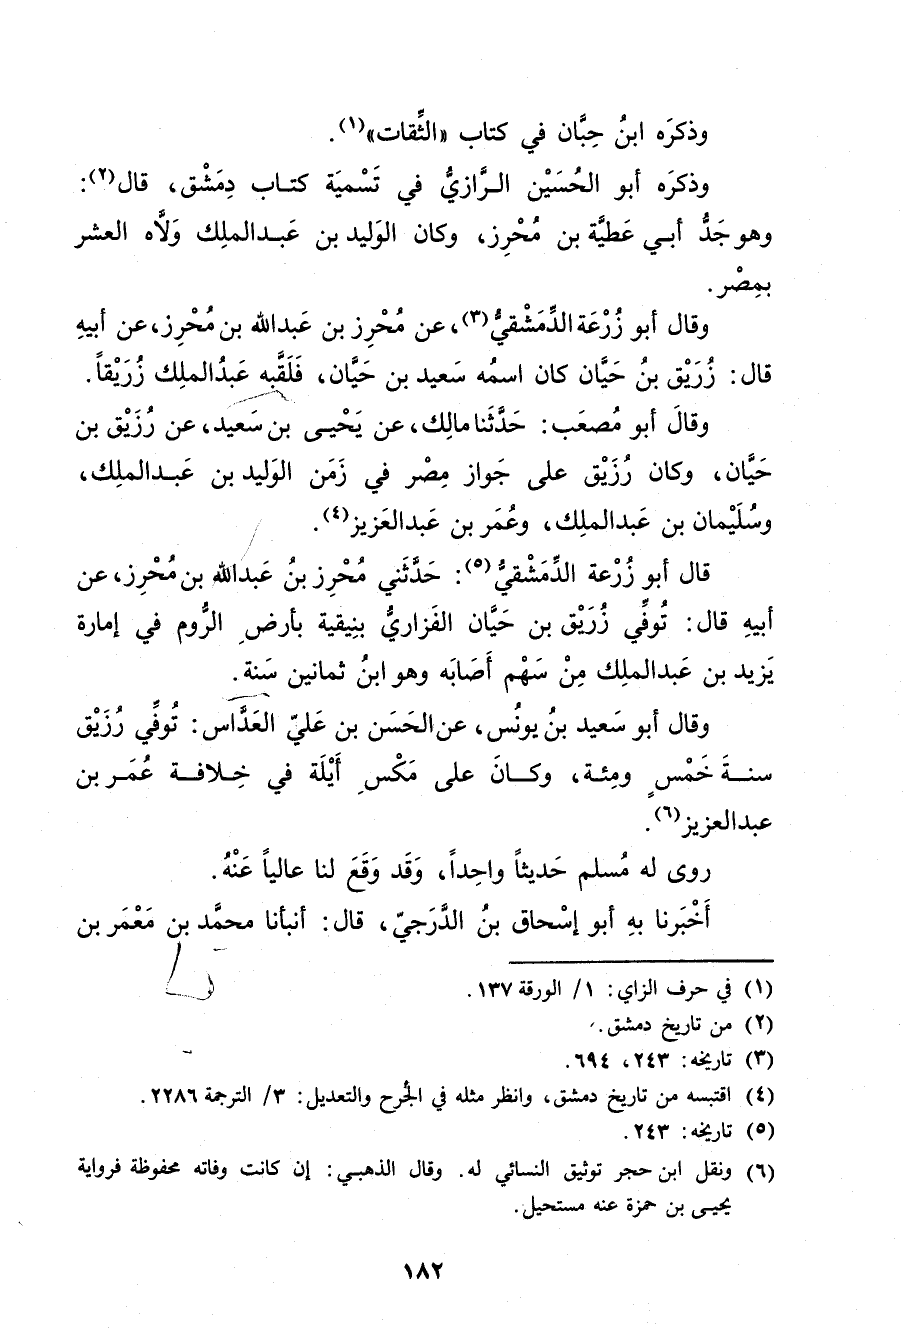 وذكرَه ابنُ حِبَّان في كتاب «الثِّقات»(١).
وذكرَه أبو الحُسَيْن الرَّازيُّ في تَسْميَة كتاب دِمَشْق، قال(٢):
وهو جَدُّ أبي عَطيَّة بن مُحْرِز، وكان الوَليد بن عَبدالملِك وَلاَّه العشر
بمِصْر.
وقال أبو زُرْعَة الدِّمَشْقيُّ(٣)، عن مُحْرِز بن عَبدالله بن مُحْرِز، عن أبيهِ
قال: زُرَيْق بنُ حَيَّان كان اسمُه سَعيد بن حَيَّان، فَلَقَّبه عَبدُالملِك زُرَيْقاً.
وقالَ أبو مُصعَب: حَدَّثَنا مالِك، عن يَحْيى بن سَعيد، عن رُزَيْق بن
حَيَّان، وكان رُزَيْق على جَواز مِصْر في زَمَن الوَليد بن عَبدالملِك،
وسُلَيْمان بن عَبدالملِك، وعُمَر بن عَبدالعَزيز(٤).
قال أبو زُرْعة الدِّمَشْقيُّ(٥): حَدَّثَني مُحْرِز بنُ عَبدالله بن مُحْرِز، عن
أبيهِ قال: تُوفِّي زُرَيْق بن حَيَّان الفَزاريُّ بنِيقية بأرضِ الرُّوم في إمارة
يَزيد بن عَبدالملِك مِنْ سَهْم أَصَابَه وهو ابنُ ثمانين سَنة.
وقال أبو سَعيد بنُ يونُس، عن الحَسَن بن عَليّ العَدَّاس: تُوفِّي رُزَيْق
سنةَ خَمْسٍ ومِئة، وكانَ على مَكْسِ أَيْلَة في خِلافة عُمَر بن
عبدالعزيز(٦).
روى له مُسلم حَديثاً واحِداً، وَقَد وَقَعَ لنا عالياً عَنْهُ.
أَخْبَرنا بهِ أبو إسْحاق بنُ الدَّرَجيّ، قال: أنبأنا محمَّد بن مَعْمَر بن
(١) في حرف الزاي: ١/ الورقة ١٣٧.
(٢) من تاريخ دمشق.
(٣) تاريخه: ٢٤٣، ٦٩٤.
(٤) اقتبسه من تاريخ دمشق، وانظر مثله في الجُرح والتعديل: ٣/ الترجمة ٢٢٨٦.
(٥) تاريخه: ٢٤٣.
(٦) ونقل ابن حجر توثيق النسائي له. وقال الذهبي: إن كانت وفاته محفوظة فرواية
يحيى بن حمزة عنه مستحيل.
١٨٢